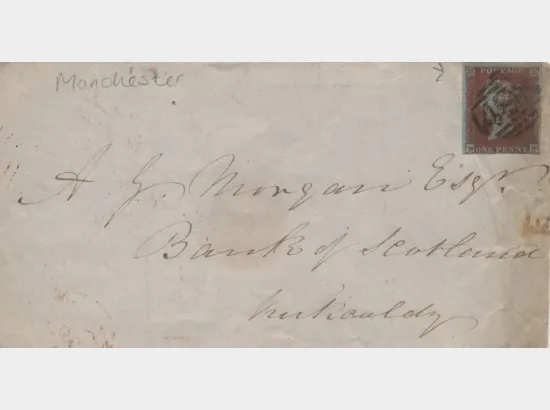 Manchester
POSTAGE
ONE PENNY
A G. Morgan Esqr.
Bank of Scotland
Kirkcaldy